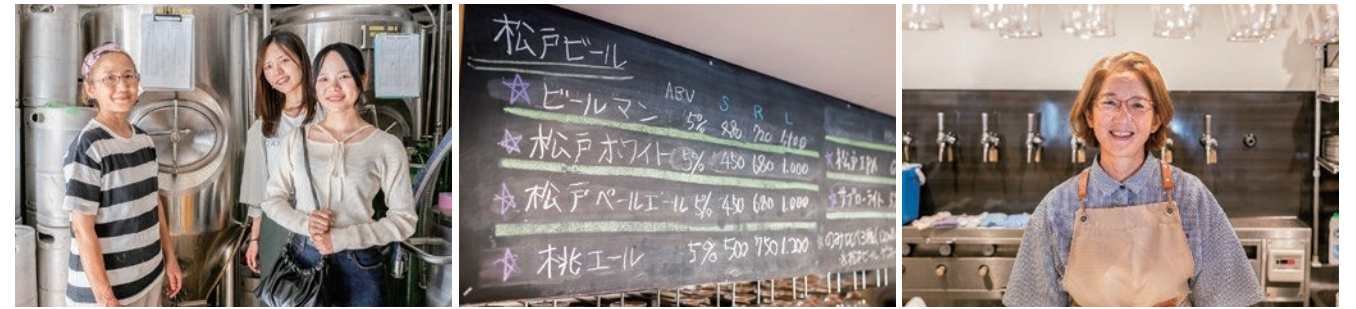 松戸ビール
ABV S R L
ビールマン 5% 480 720 1,100
松戸ホワイト 5% 450 680 1.000
松戸ペールエール 5% 450 680 1.000
桃エール 5% 500 750 1.200
松戸IPA
サブローライト